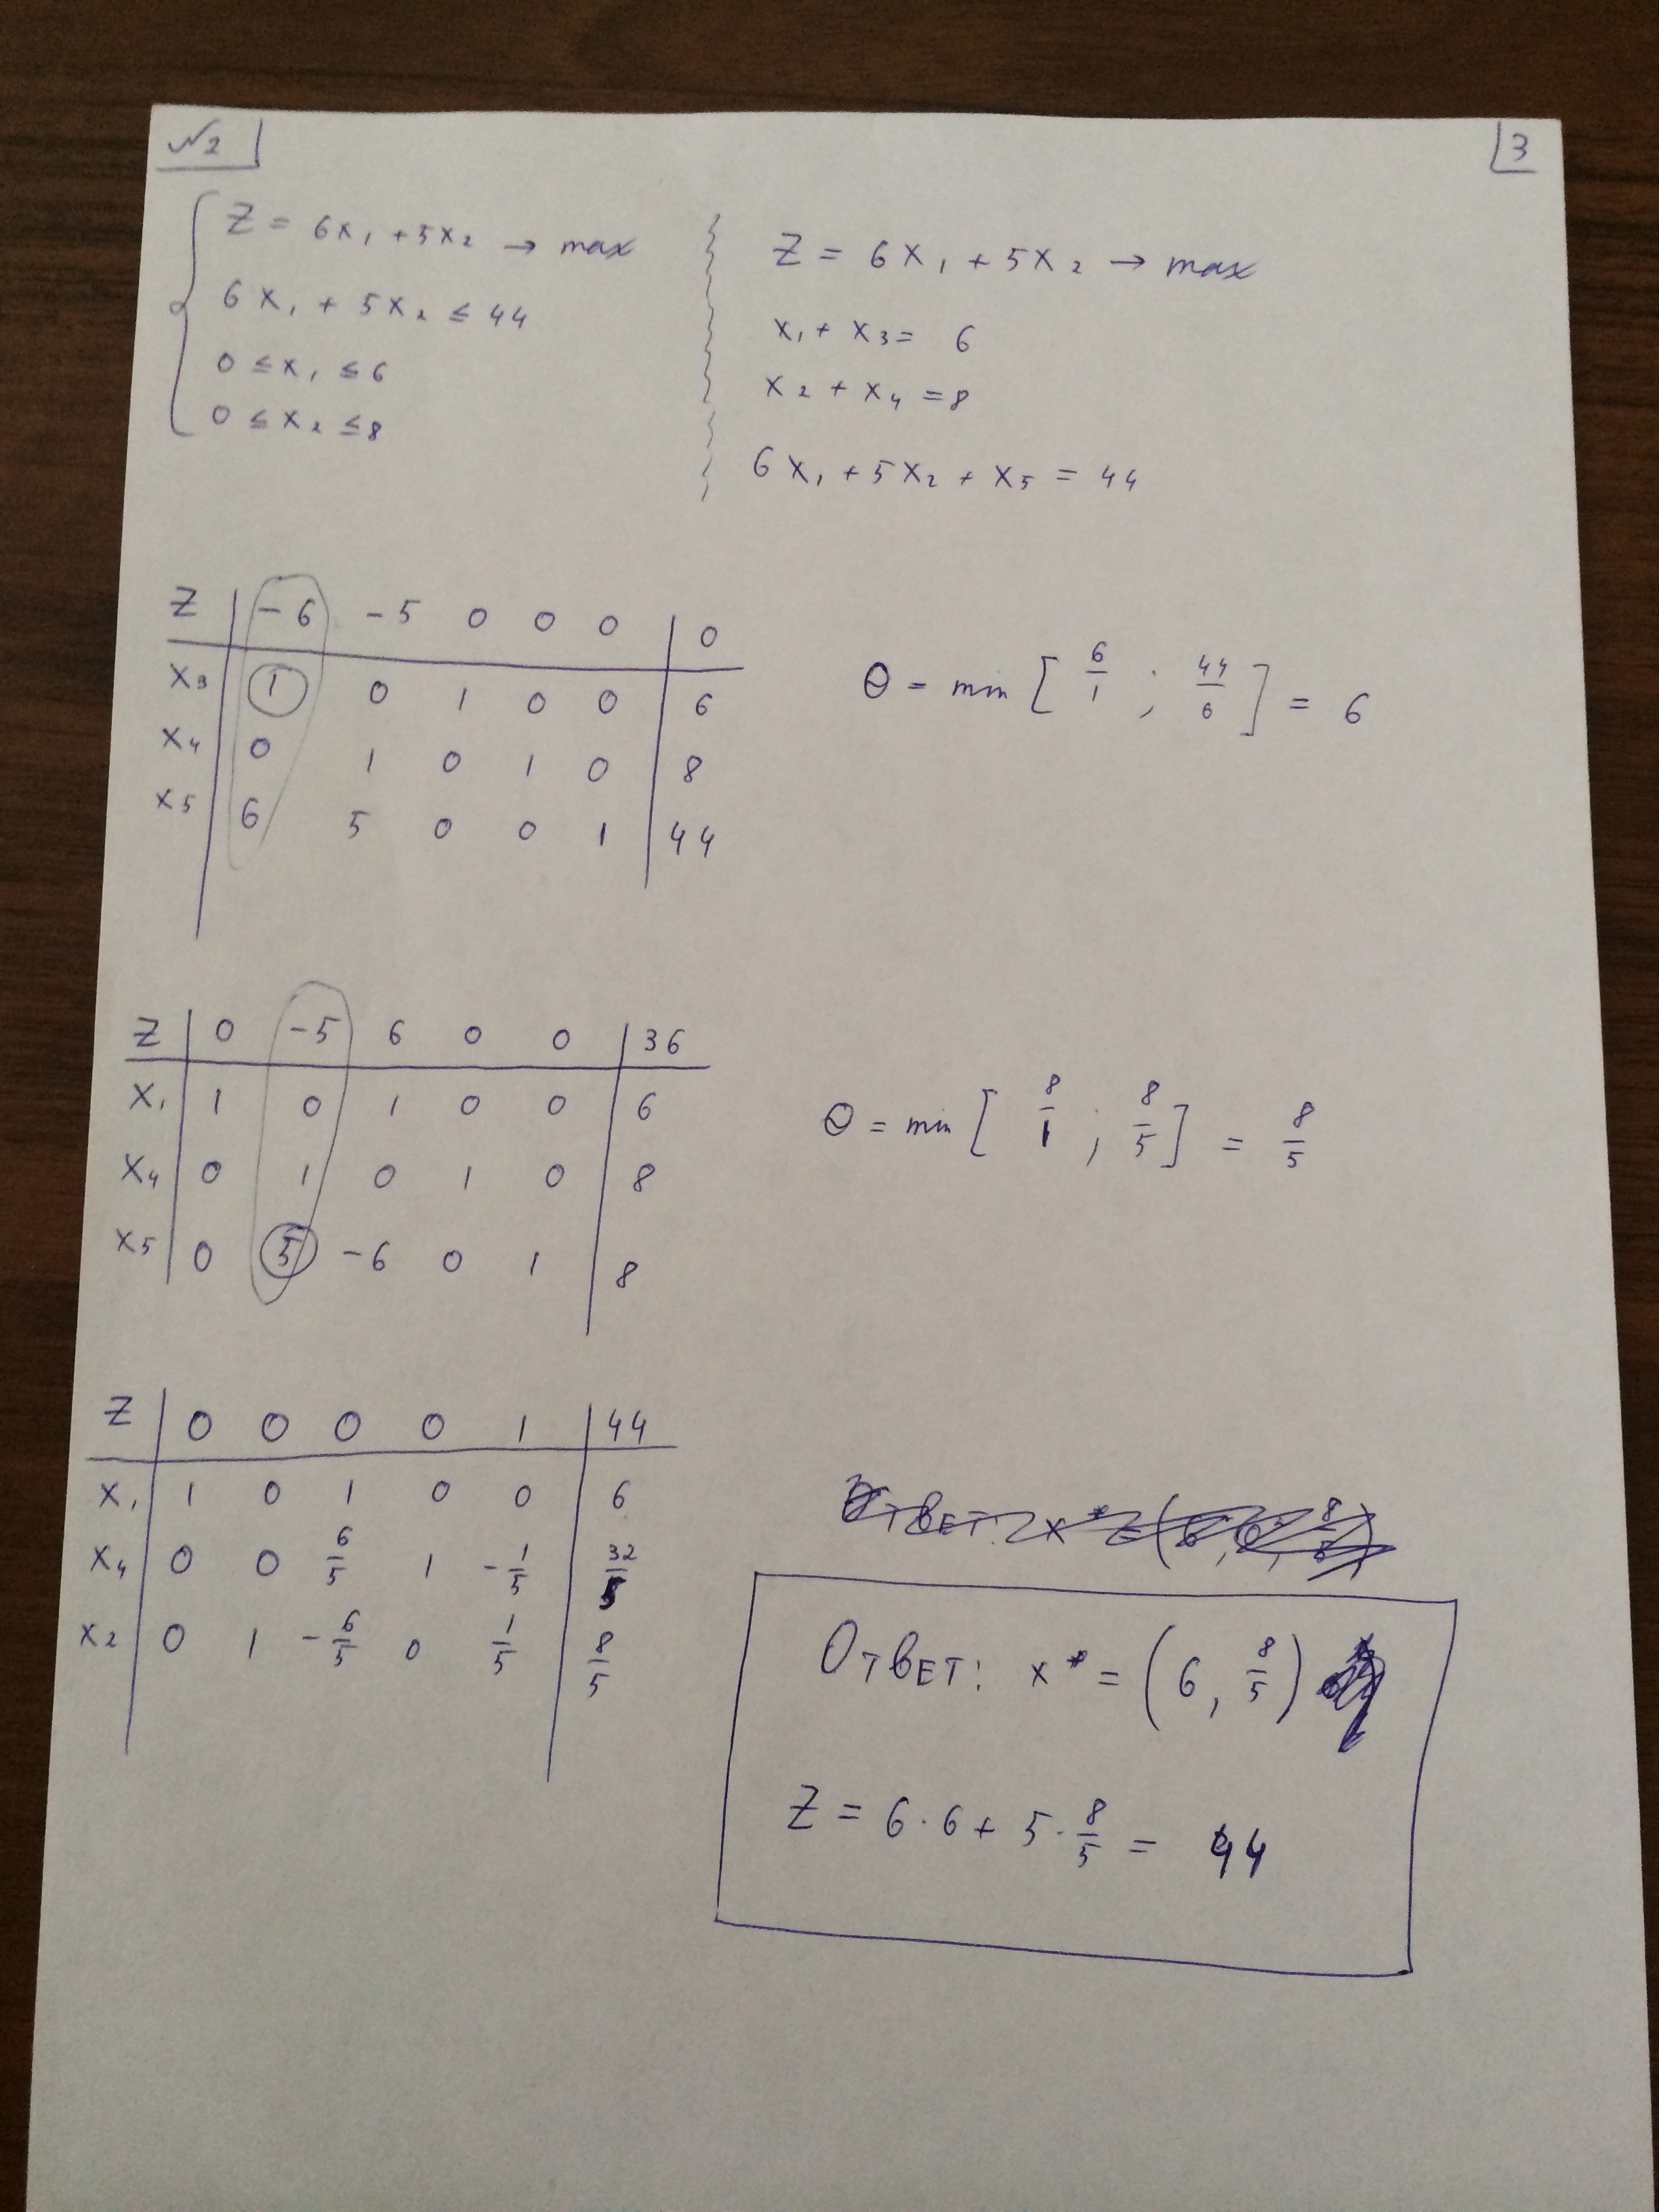 №2
3
Z = 6x₁ + 5x₂ → max
6x₁ + 5x₂ ≤ 44
0 ≤ x₁ ≤ 6
0 ≤ x₂ ≤ 8
Z = 6x₁ + 5x₂ → max
x₁ + x₃ = 6
x₂ + x₄ = 8
6x₁ + 5x₂ + x₅ = 44
Z | -6 -5 0 0 0 | 0
x₃ | 1 0 1 0 0 | 6
x₄ | 0 1 0 1 0 | 8
x₅ | 6 5 0 0 1 | 44
Θ = min [ 6/1 ; 44/6 ] = 6
Z | 0 -5 6 0 0 | 36
x₁ | 1 0 1 0 0 | 6
x₄ | 0 1 0 1 0 | 8
x₅ | 0 5 -6 0 1 | 8
Θ = min [ 8/1 ; 8/5 ] = 8/5
Z | 0 0 0 0 1 | 44
x₁ | 1 0 1 0 0 | 6
x₄ | 0 0 6/5 1 -1/5 | 32/5
x₂ | 0 1 -6/5 0 1/5 | 8/5
Ответ: x* = (6, 8/5)
Z = 6·6 + 5·8/5 = 44